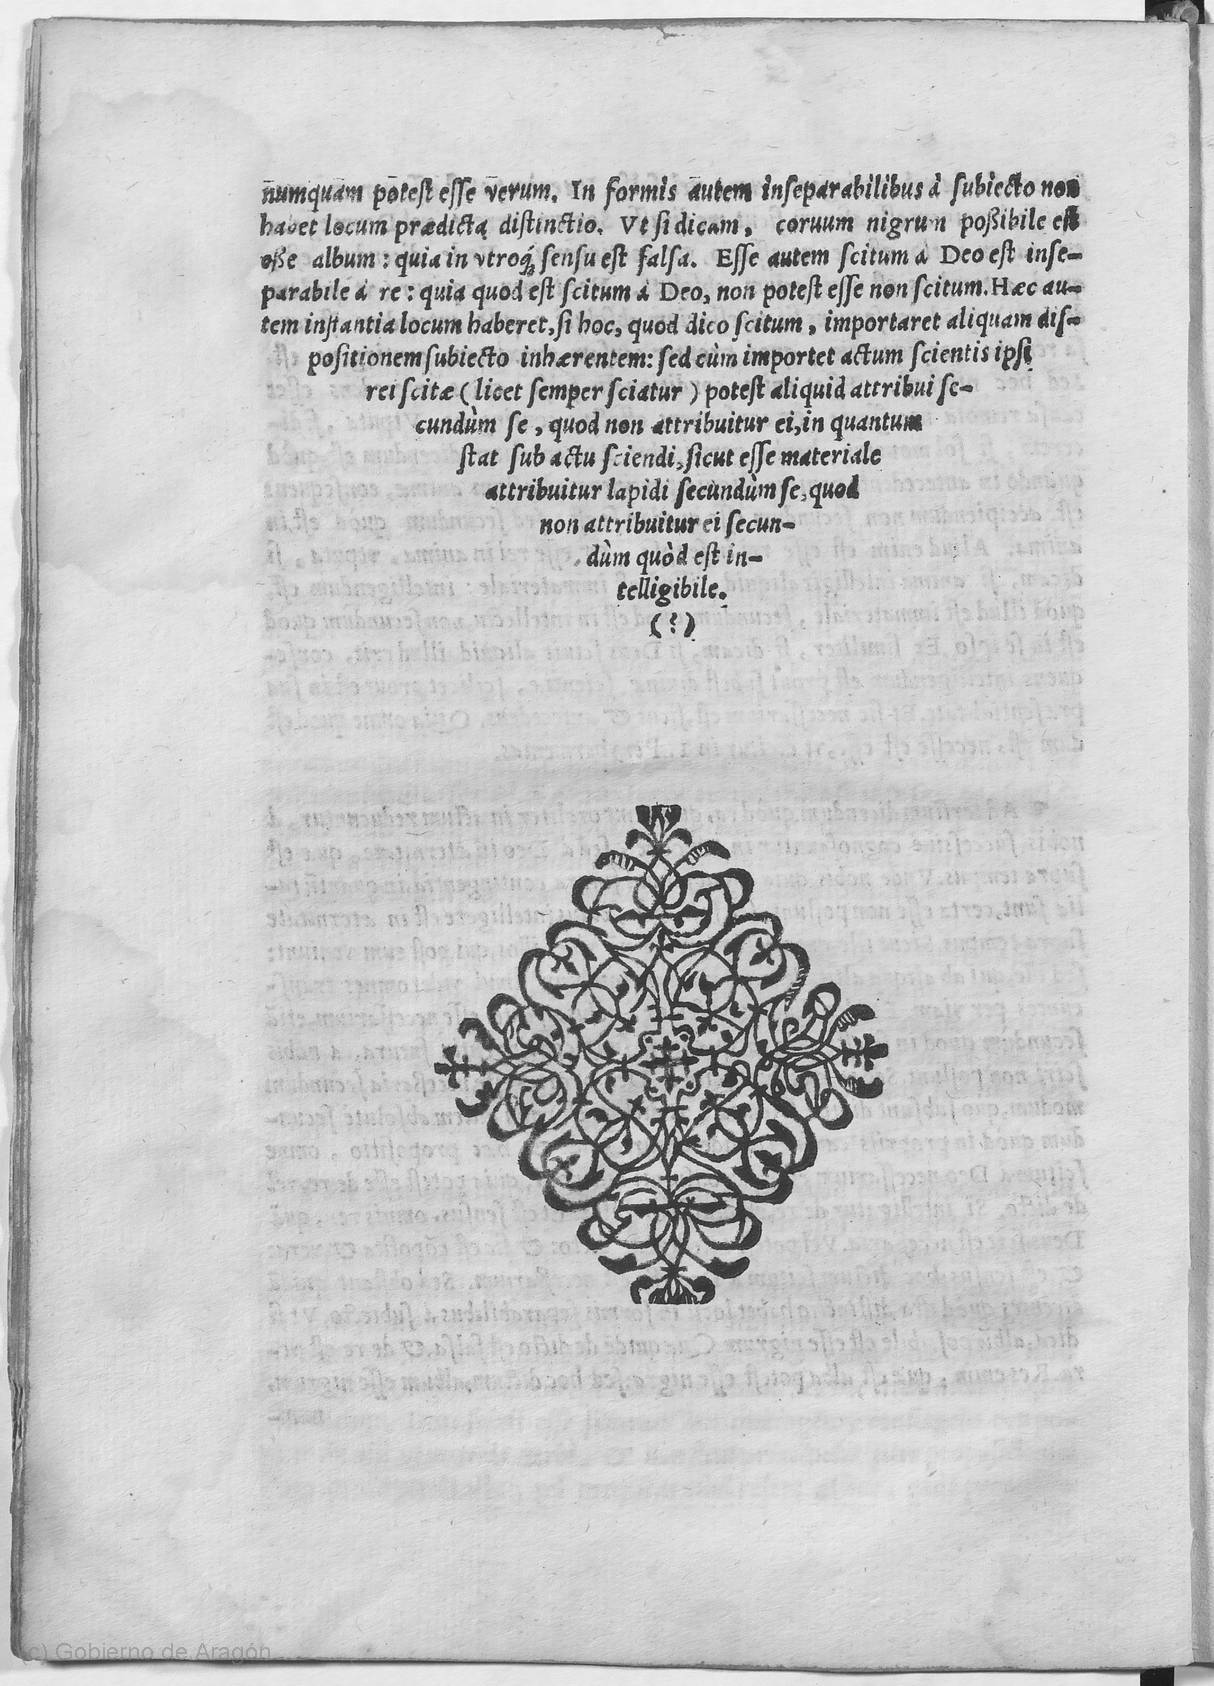 numquam potest esse verum. In formis autem inseparabilibus à subiecto non
habet locum prædicta distinctio. Vt si dicam, coruum nigrum poßibile est
eße album: quia in vtroq́; sensu est falsa. Esse autem scitum à Deo est inse-
parabile á re: quia quod est scitum á Deo, non potest esse non scitum. Hæc au-
tem instantia locum haberet, si hoc, quod dico scitum, importaret aliquam dis-
positionem subiecto inhærentem: sed cùm importet actum scientis ipsi
rei scitæ (licet semper sciatur) potest aliquid attribui se-
cundùm se, quod non attribuitur ei, in quantum
stat sub actu sciendi, sicut esse materiale
attribuitur lapidi secundùm se, quod
non attribuitur ei secun-
dùm quòd est in-
telligibile.
(?)
(c) Gobierno de Aragón